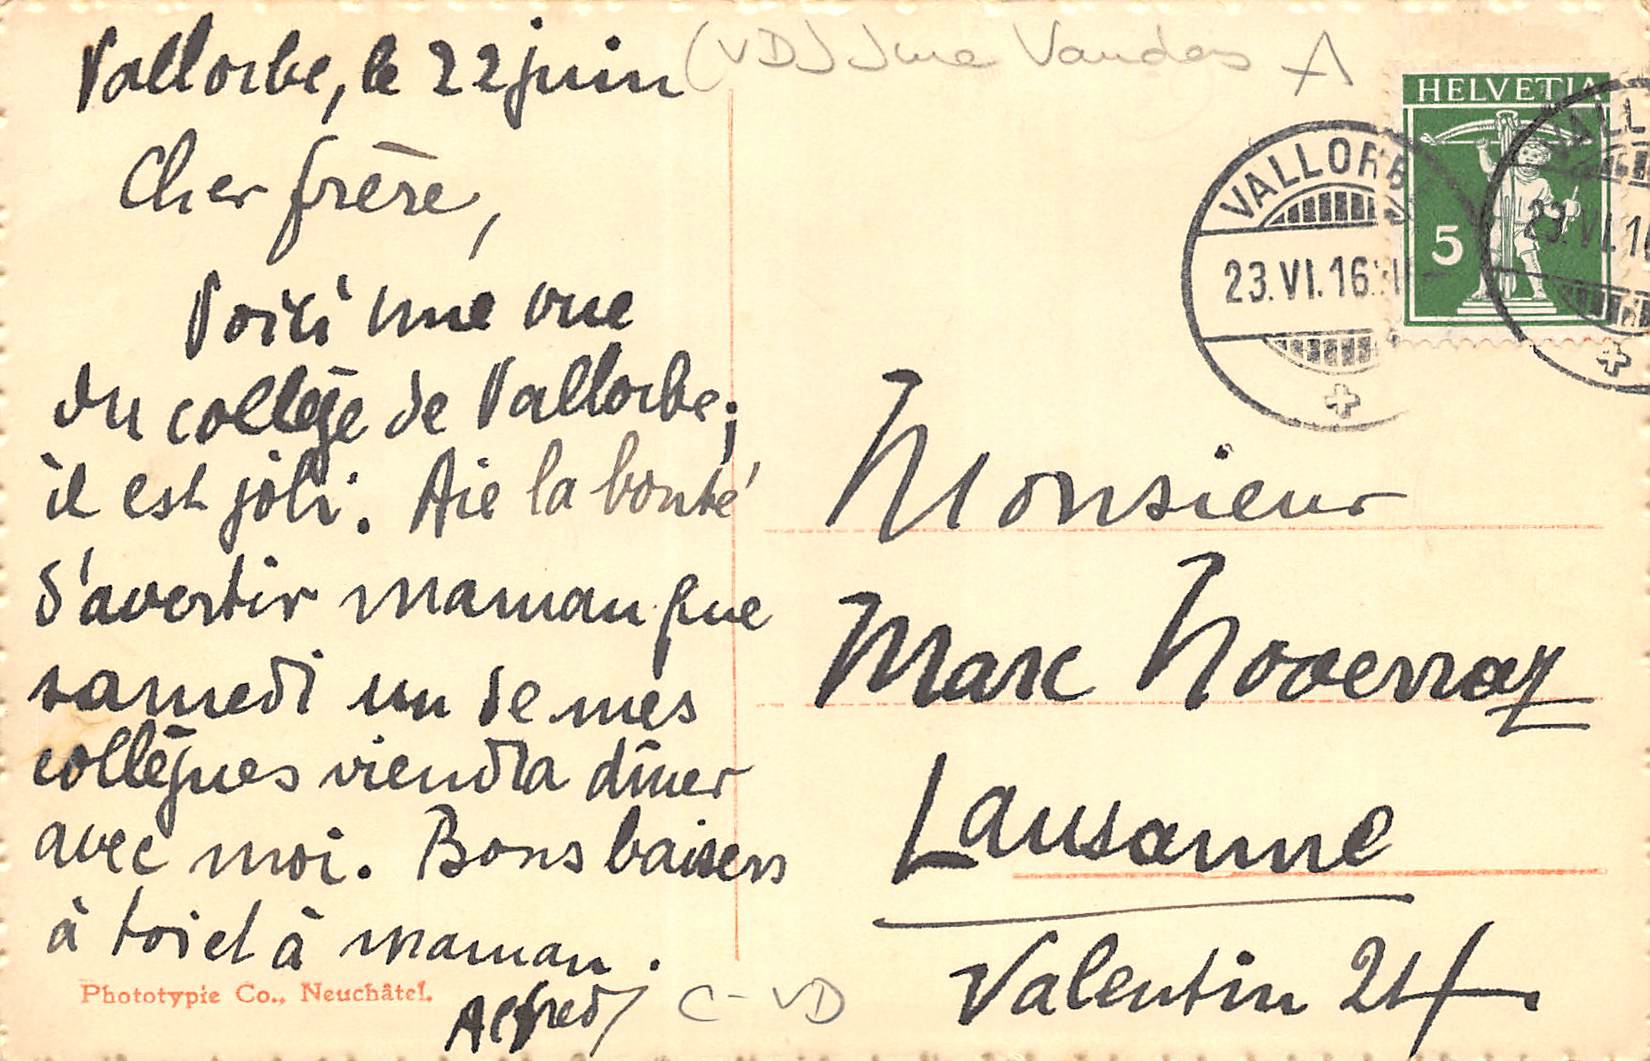 Vallorbe, le 22 juin
(VD) Jura Vaudois A
Cher frère,
Voici une vue
du collège de Vallorbe;
il est joli. Aie la bonté
d'avertir maman que
samedi un de mes
collègues viendra dîner
avec moi. Bons baisers
à toi et à maman.
Alfred
Phototypie Co., Neuchâtel.
C-VD
HELVETIA
5
VALLORBE
23.VI.16
VALL
23.VI.1
Monsieur
Marc Noverraz
Lausanne
Valentin 21